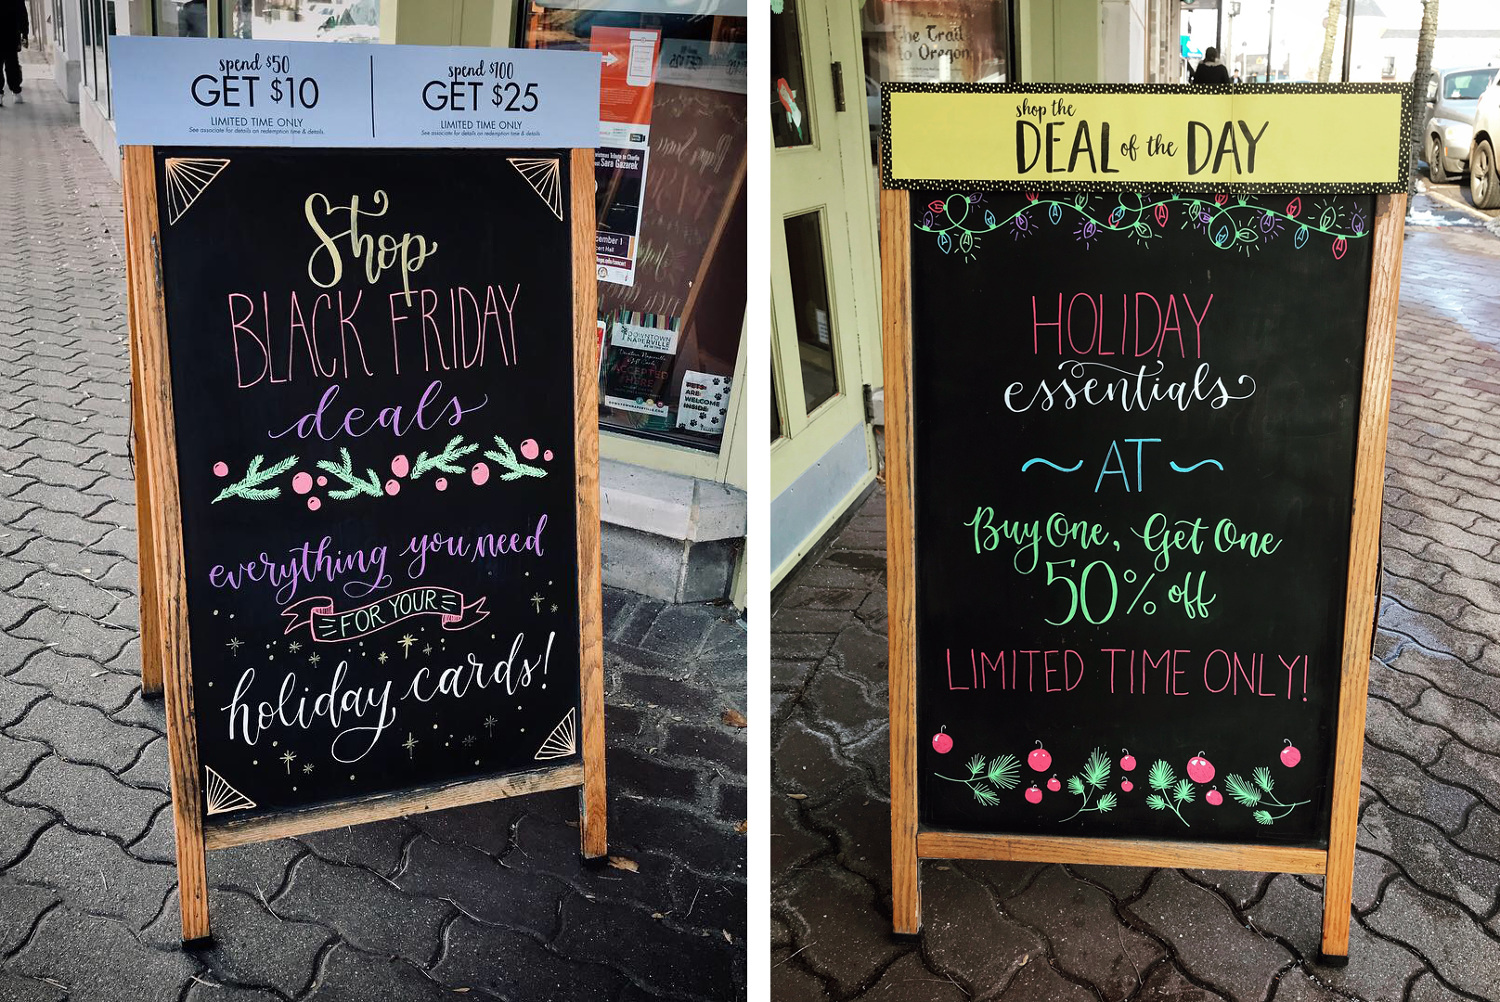 spend $50
GET $10
LIMITED TIME ONLY
See associate for details on redemption time & details.
spend $100
GET $25
LIMITED TIME ONLY
See associate for details on redemption time & details.
Shop
BLACK FRIDAY
deals
everything you need
FOR YOUR
holiday cards!
Sara Gazarek
DOWNTOWN
NAPERVILLE
ACCEPTED
HERE
PETS
ARE
WELCOME
INSIDE
The Trail
to Oregon
shop the
DEAL of the DAY
HOLIDAY
essentials
~ AT ~
Buy One, Get One
50% off
LIMITED TIME ONLY!